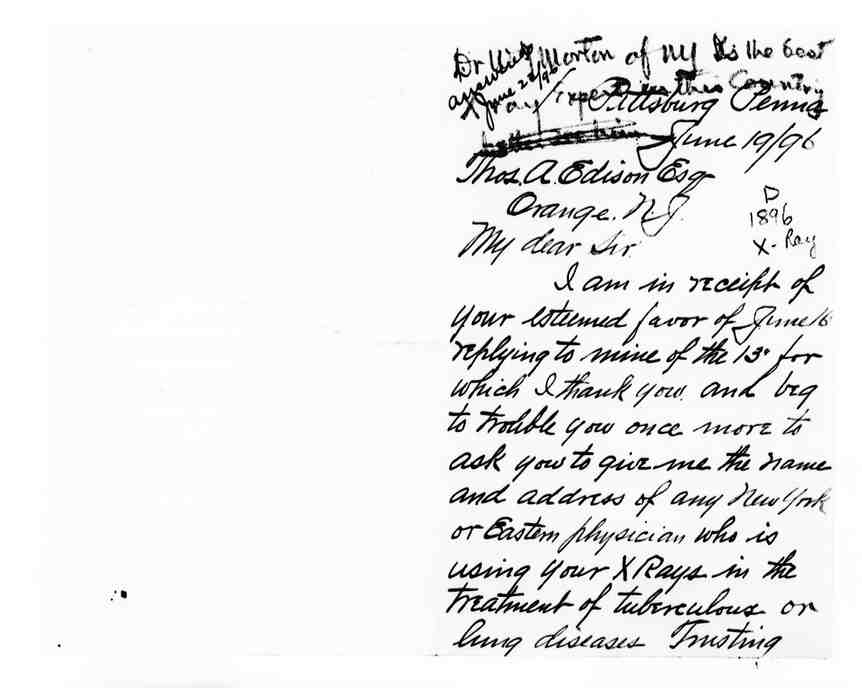 Dr Wm J Morton of NY Is the best
answered
June 22/96
any Exper in this Country
Pittsburg Penna
June 19/96
Thos. A. Edison Esq
Orange. N.J.
D
1896
X-Ray
My dear Sir
I am in receipt of
your esteemed favor of June 16
replying to mine of the 13" for
which I thank you. and beg
to trouble you once more to
ask you to give me the name
and address of any New York
or Eastern physician who is
using your X Rays in the
treatment of tuberculous or
lung diseases Trusting